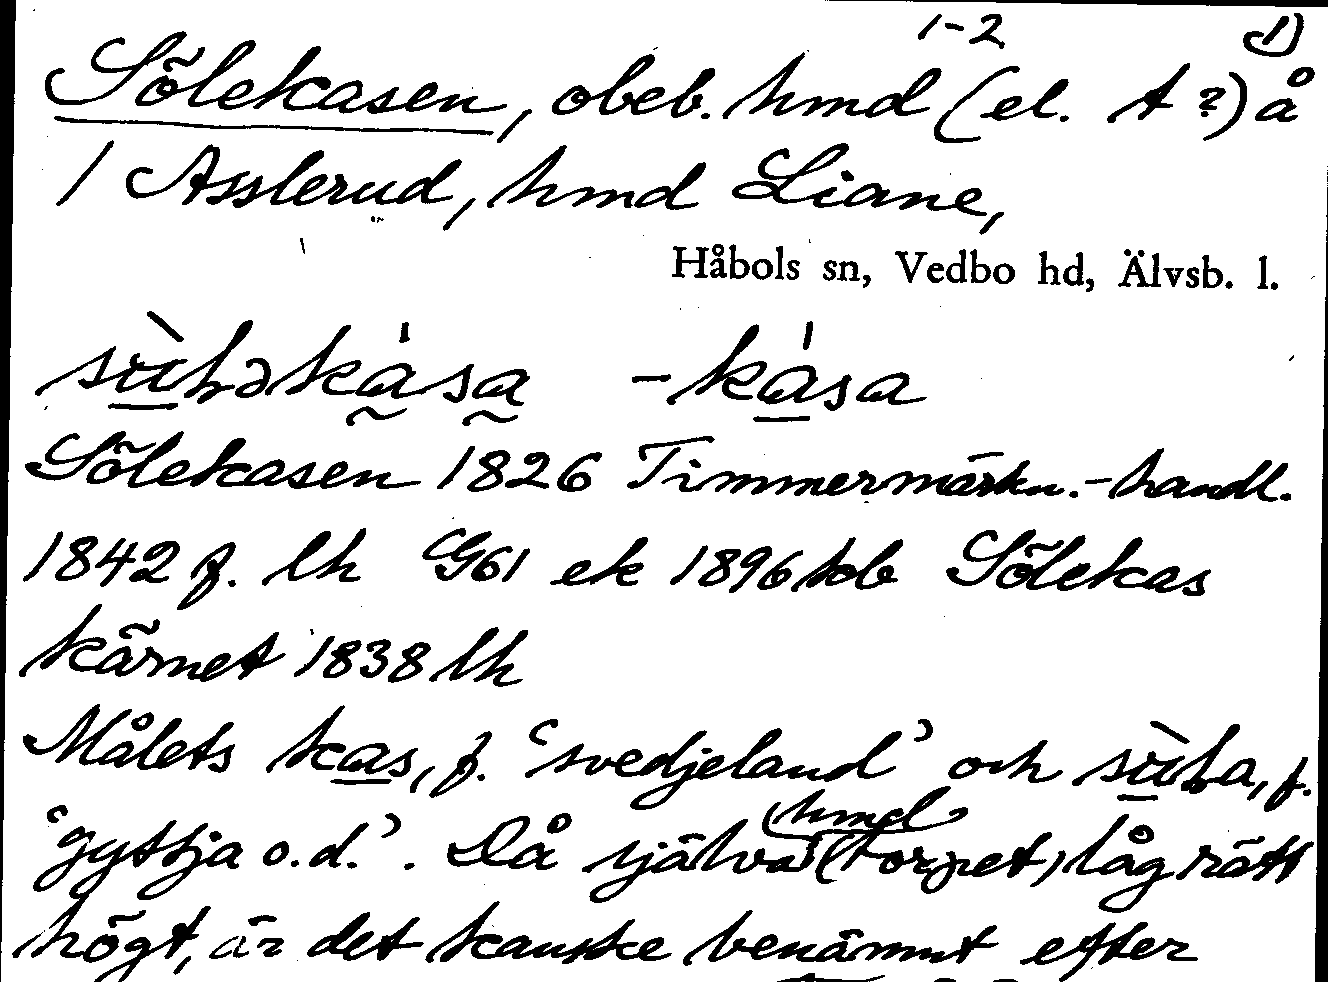 1-2 1)
Sölekasen, obeb. hmd (el. t?) å
1 Asslerud, hmd Liane,
Håbols sn, Vedbo hd, Älvsb. l.
-kasa
Sölekasen 1826 Timmermärkn.-handl.
1842 f. lh G61 ek 1896 kb Sölekas
kärnet 1838 lh
Målets kas, f. 'svedjeland' och f.
hmd
'gyttja o.d.'. Då själva (torpet) låg rätt
högt, är det kanske benämnt efter